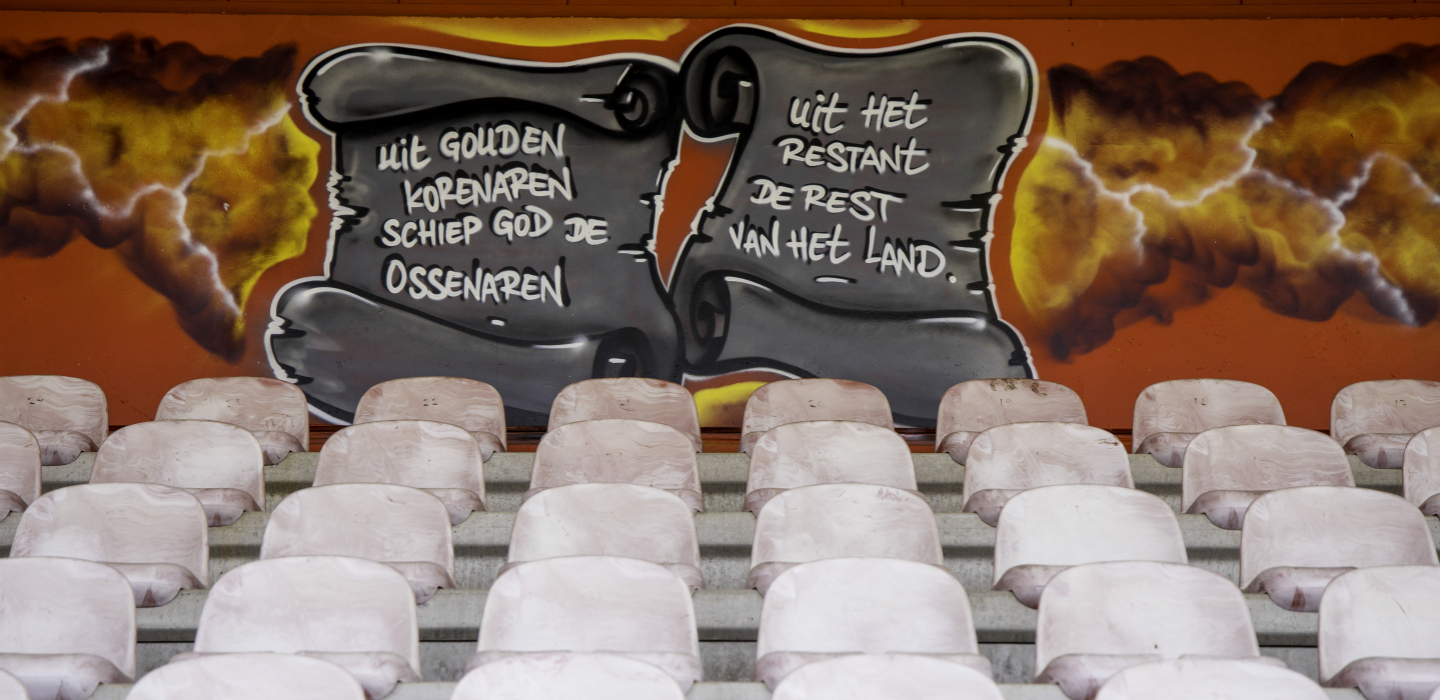 uit GOUDEN
KORENAREN
SCHIEP GOD DE
OSSENAREN
uit HET
RESTANT
DE REST
VAN HET LAND.